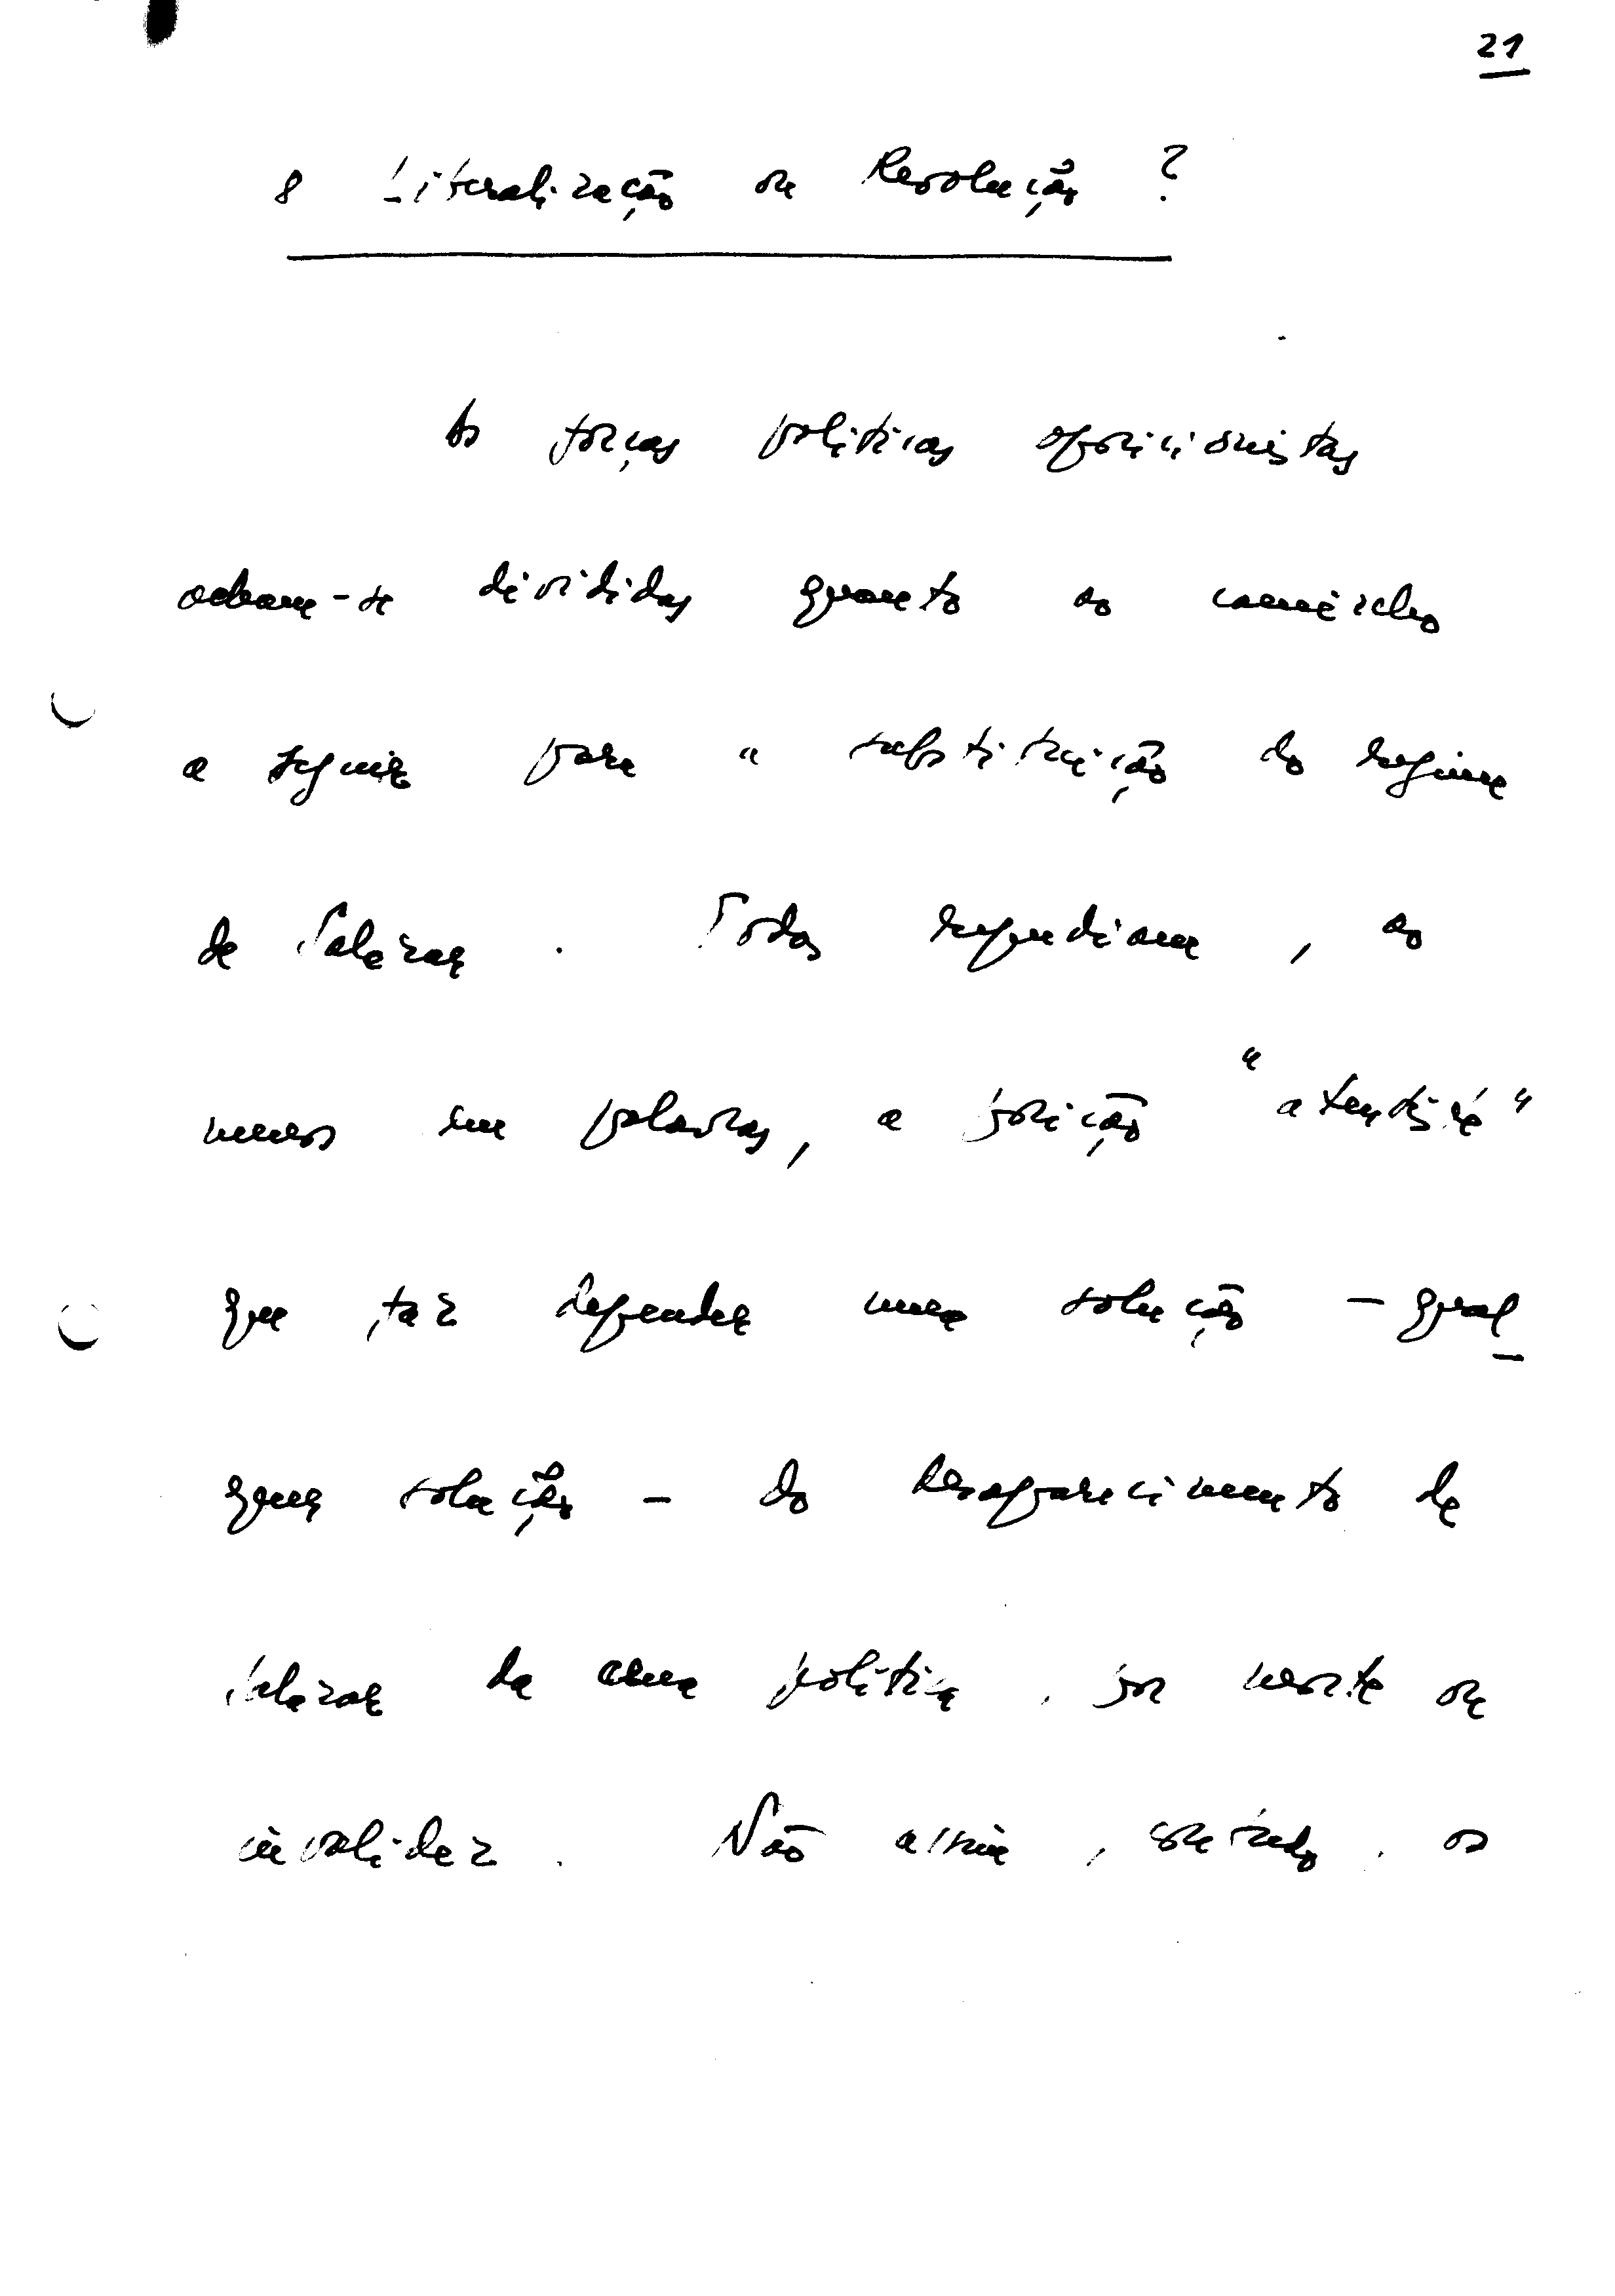 21
8 Liberalização ou Revolução ?
As forças políticas oposicionistas
acham-se divididas quanto ao caminho
a seguir para a substituição do regime
de Salazar . Todas repudiam , ao
menos em palavras, a posição "atentista"
que faz depender uma solução — qual-
quer solução — do desaparecimento de
Salazar da cena política , por morte ou
invalidez . Não assim , contudo , os